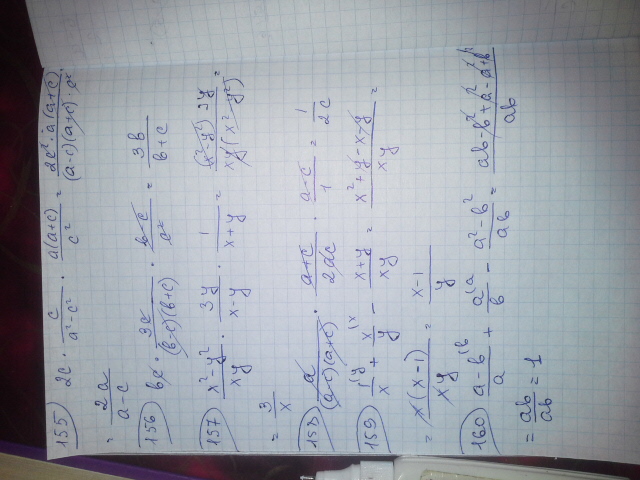 155) 2c · c/(a²-c²) · a(a+c)/c² = 2c²·a(a+c)/((a-c)(a+c)·c²)
= 2a/(a-c)
156) bc · 3c/((b-c)(b+c)) · (b-c)/c² = 3b/(b+c)
157) (x²-y²)/xy · 3y/(x-y) · 1/(x+y) = (x²-y²)3y/(xy(x²-y²)) =
= 3/x
158) a/((a-c)(a+c)) · (a+c)/2ac · (a-c)/1 = 1/2c
159) 1^y/x + x^1x/y - (x+y)/xy = (x²+y-x-y)/xy =
= x(x-1)/xy = (x-1)/y
160) (a-b^1b)/a + a^1a/b - (a²-b²)/ab = (ab-b²+a²-a²+b²)/ab
= ab/ab = 1